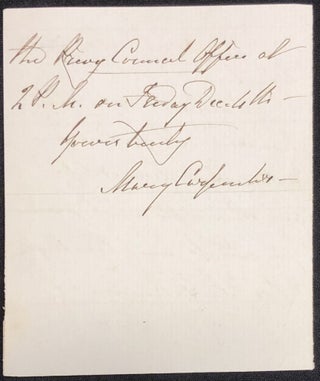 the Privy Council Office at
2 P.M. on Friday Dec. 4th –
Yours truly
Mary Carpenter –